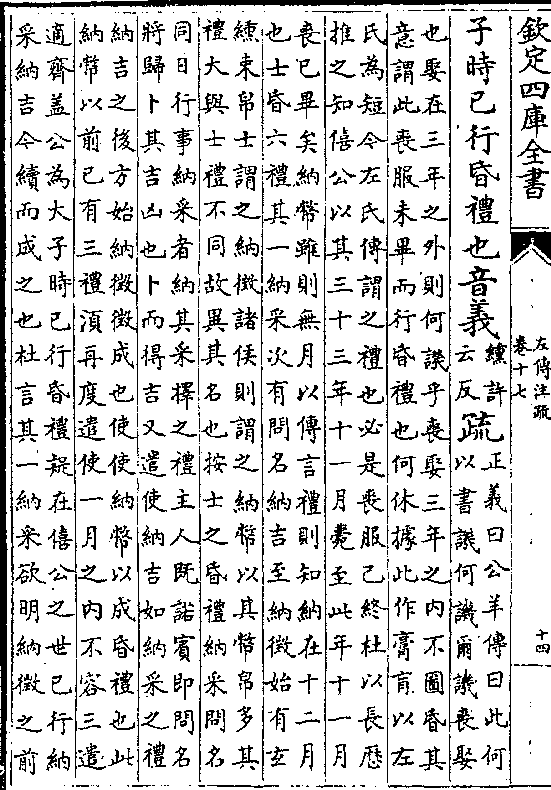 欽定四庫全書
左傳注疏
卷十七
十四
子時已行昏禮也音義纁許云反疏正義曰公羊傳曰此何以書譏何譏爾譏喪娶
也娶在三年之外則何譏乎喪娶三年之内不圖昏其
意謂此喪服未畢而行昏禮也何休據此作膏肓以左
氏為短今左氏傳謂之禮也必是喪服已終杜以長歴
推之知僖公以其三十三年十一月薨至此年十一月
喪已畢矣納幣雖則無月以傳言禮則知納在十二月
也士昏六禮其一納采次有問名納吉至納徴始有玄
纁束帛士謂之納徴諸侯則謂之納幣以其幣帛多其
禮大與士禮不同故異其名也按士之昏禮納采問名
同日行事納采者納其采擇之禮主人既諾賓即問名
將歸卜其吉凶也卜而得吉又遣使納吉如納采之禮
納吉之後方始納徴徴成也使使納幣以成昏禮也此
納幣以前已有三禮湏再度遣使一月之内不容三遣
適齊盖公為大子時已行昏禮疑在僖公之世已行納
采納吉今續而成之也杜言其一納采欲明納徴之前